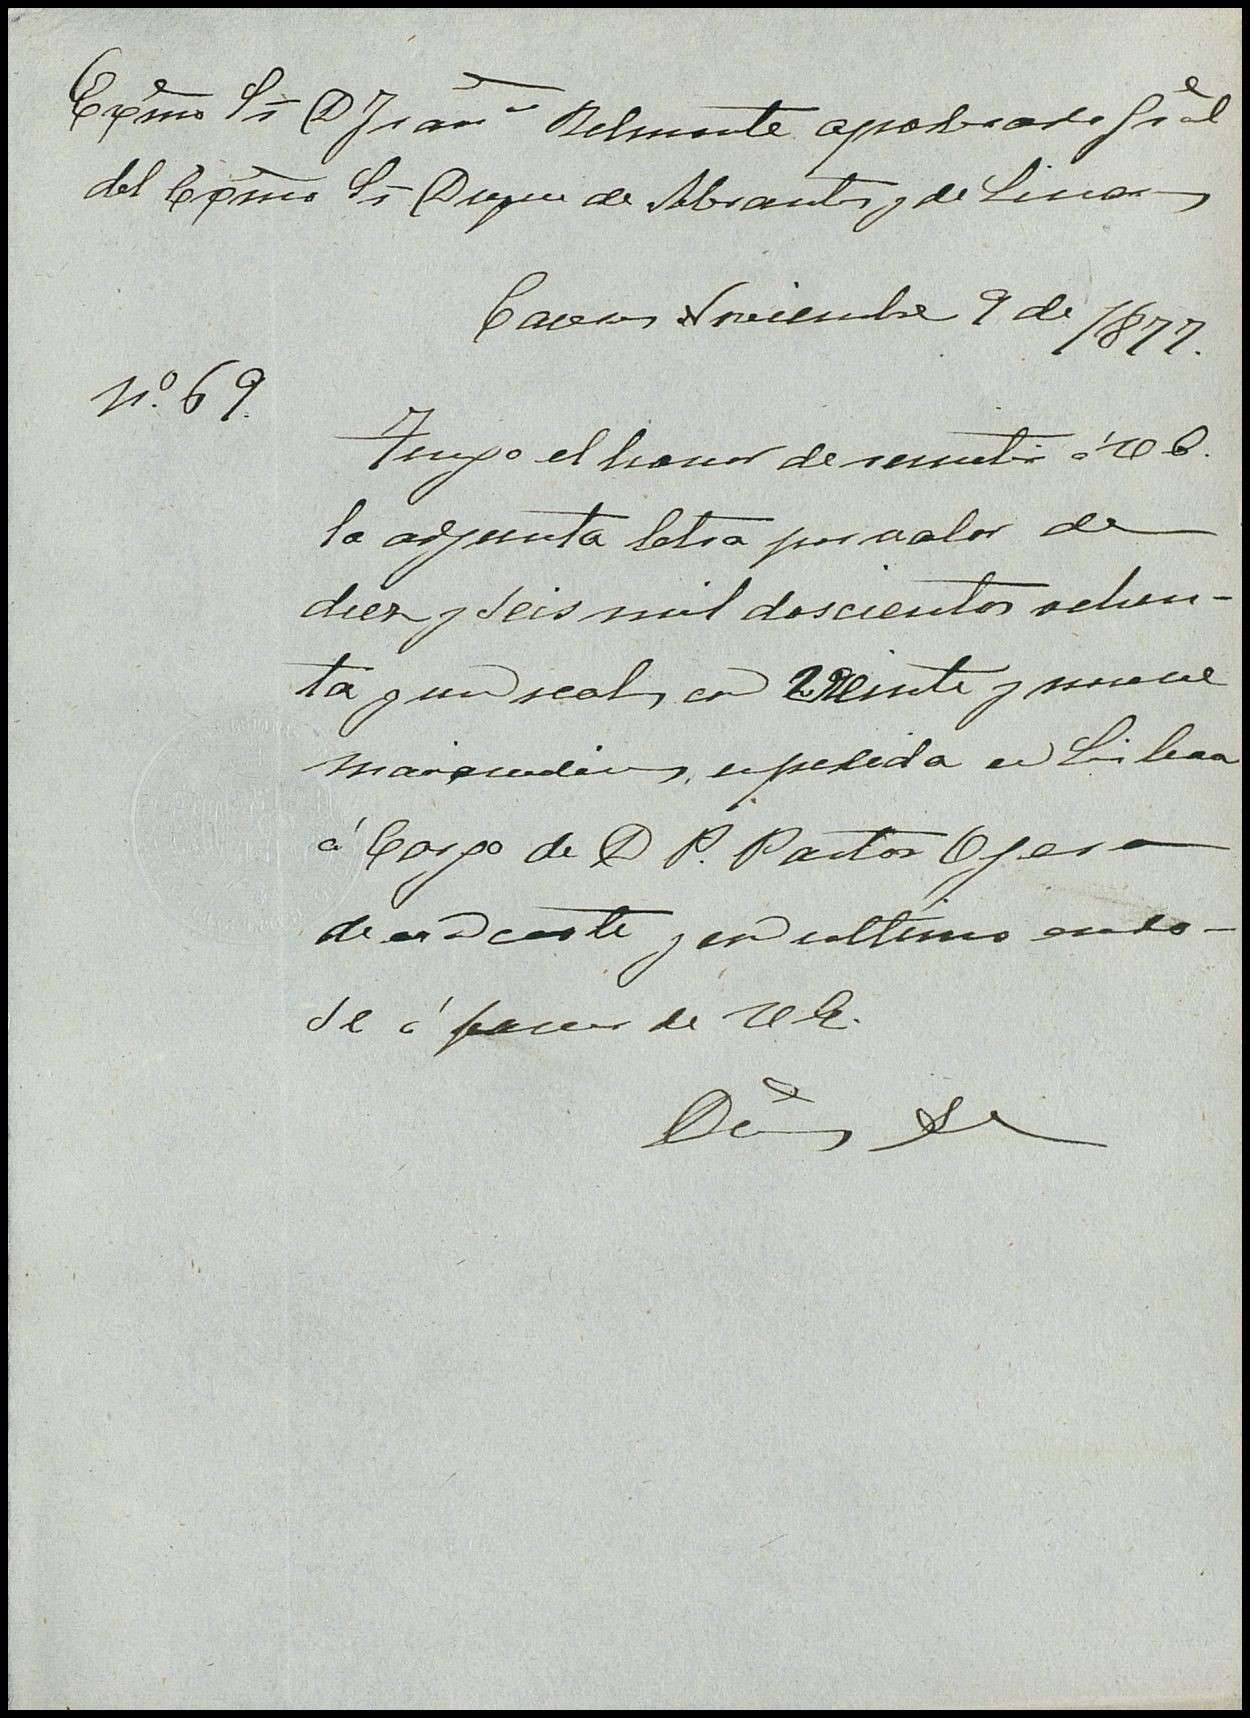 Exmo Sr D Franco Belmonte apoderado Gral
del Exmo Sr Duque de Abrantes y de Linares
Caceres Noviembre 9 de 1877.
No. 69.
Tengo el honor de remitir á V E.
la adjunta letra por valor de
diez y seis mil doscientos ochen-
ta y un reales con veinte y nueve
maravedises, expedida en Lisboa
á Cargo de D P. Pastor Ojero
de esa corte y en ultimo endo-
se á favor de V E.
Dios